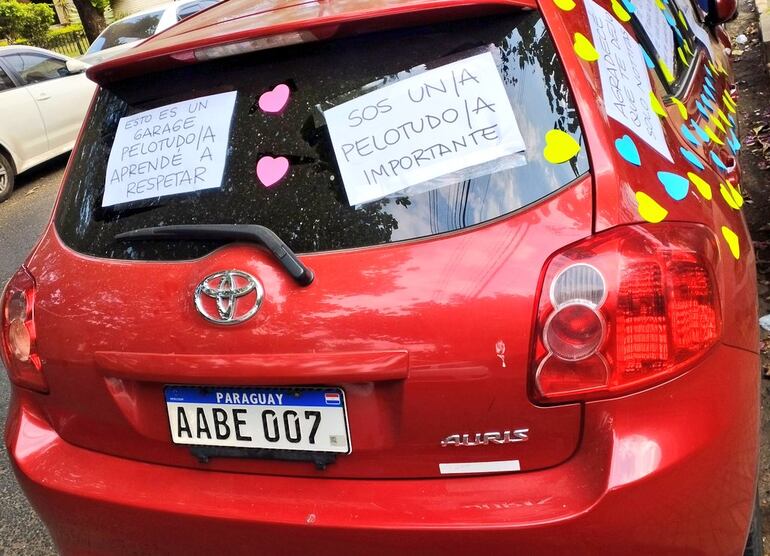 ESTO ES UN
GARAGE
PELOTUDO/A
APRENDE A
RESPETAR
SOS UN/A
PELOTUDO/A
IMPORTANTE
PARAGUAY
AABE 007
AURIS